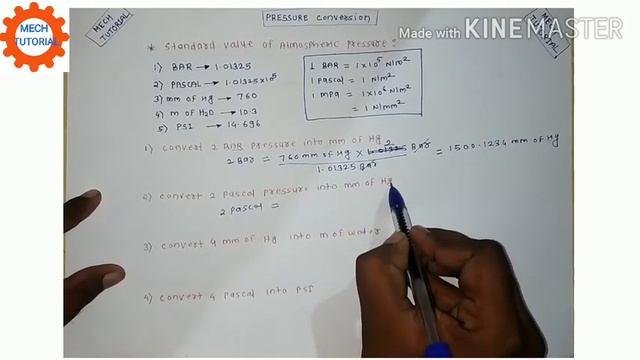 MECH
TUTORIAL
MECH
TUTORIAL
PRESSURE conversion
Made with KINEMASTER
MECH
TUTORIAL
* Standard value of Atmospheric Pressure:
1) BAR → 1.01325
2) PASCAL → 1.01325x10⁵
3) mm of Hg → 760
4) m of H₂O → 10.3
5) PSI → 14.696
1 BAR = 1x10⁵ N/m²
1 pascal = 1 N/m²
1 mpa = 1x10⁶ N/m²
= 1 N/mm²
1) convert 2 BAR pressure into mm of Hg
2 Bar = 760 mm of Hg x 2 Bar = 1500.1234 mm of Hg
1.01325 Bar
2) convert 2 pascal pressure into mm of Hg
2 pascal =
3) convert 4 mm of Hg into m of water
4) convert 4 pascal into PSI